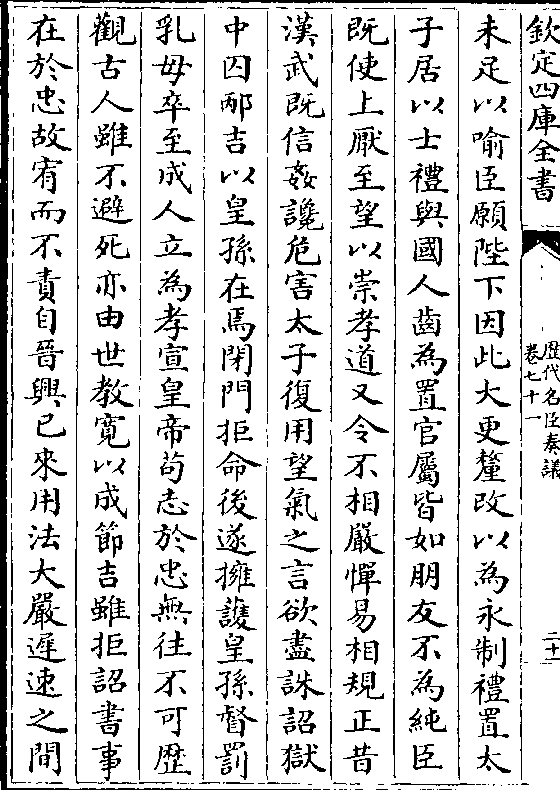 欽定四庫全書
歷代名臣奏議
卷七十一
二十一
未足以喻臣願陛下因此大更釐改以為永制禮置太
子居以士禮與國人齒為置官屬皆如朋友不為純臣
既使上厭至望以崇孝道又令不相嚴憚易相規正昔
漢武既信姦讒危害太子復用望氣之言欲盡誅詔獄
中囚邴吉以皇孫在焉閉門拒命後遂擁護皇孫督罰
乳母卒至成人立為孝宣皇帝苟志於忠無往不可歷
觀古人雖不避死亦由世教寛以成節吉雖拒詔書事
在於忠故宥而不責自晉興已來用法大嚴遲速之間